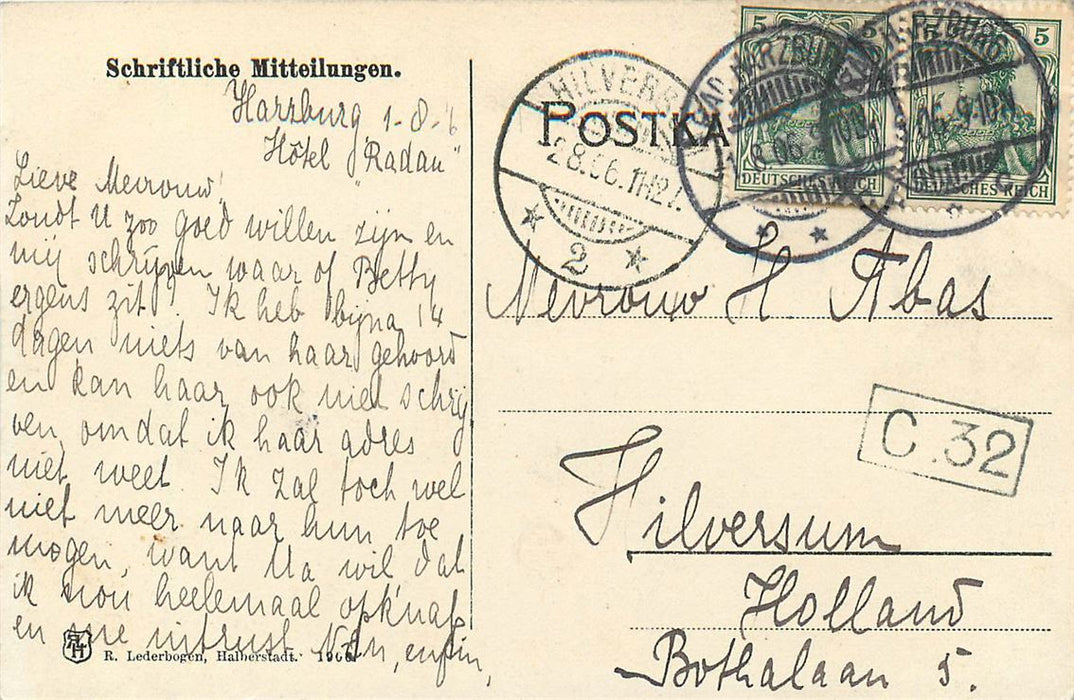 Schriftliche Mitteilungen.
Harzburg 1-8-'6
Hôtel "Radau"
Lieve Mevrouw!
Zoudt U zoo goed willen zijn en
mij schrijven waar of Betty
ergens zit? Ik heb bijna 14
dagen niets van haar gehoord
en kan haar ook niet schrij
ven, omdat ik haar adres
niet weet. Ik zal toch wel
niet meer naar hun toe
mogen, want Ma wil dat
ik nou heelemaal opknap
en me uitrust. Nou, enfin,
R. Lederbogen, Halberstadt. 1906
POSTKA
HILVER
2.8.06.11-12V.
2
BAD HARZBURG
8.06
9-10V.
BAD HARZBURG
06.9-10V
5 5
DEUTSCHES REICH
5
DEUTSCHES REICH
Mevrouw H. Abas
C.32
Hilversum
Holland
Bothalaan 5.